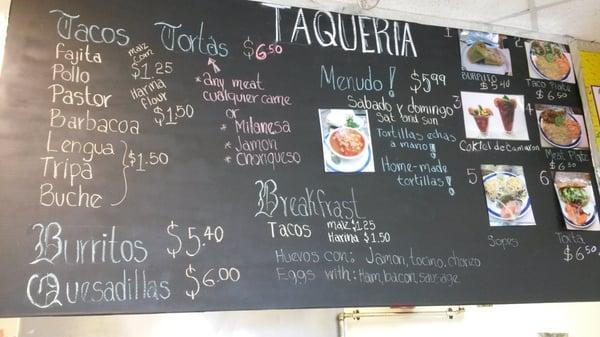 TAQUERIA
Tacos
Fajita
Pollo
Pastor
Barbacoa
Lengua
Tripa
Buche
$1.50
maiz
corn
$1.25
Harina
flour
$1.50
Tortas $6.50
*any meat
cualquier carne
or
* Milanesa
* Jamon
* Chonqueso
Burritos $5.40
Quesadillas $6.00
Menudo! $5.99
Sabado y domingo
sat and sun
Tortillas echas
a mano!
Home-made
tortillas!
Breakfrast
Tacos
maiz $1.25
Harina $1.50
Huevos con: Jamon, tocino, chorizo
Eggs with: Ham, bacon, sausage
1
BURRITO
$5.40
2
Taco Plate
$6.50
3
Coktel de Camaron
4
Meat Plate
$6.50
5
Sopes
6
Torta
$6.50